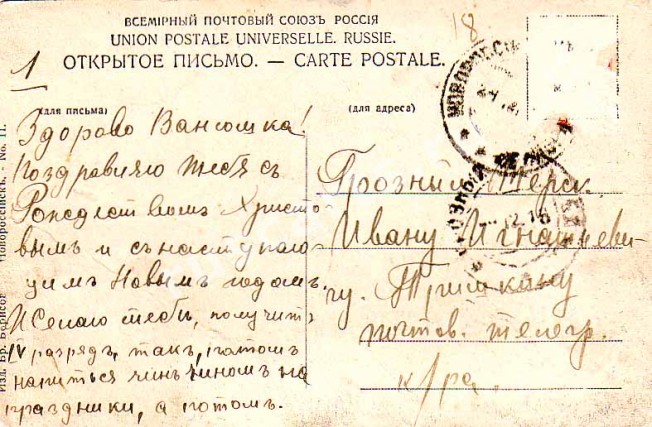 ВСЕМІРНЫЙ ПОЧТОВЫЙ СОЮЗЪ РОССІЯ
UNION POSTALE UNIVERSELLE. RUSSIE.
ОТКРЫТОЕ ПИСЬМО. — CARTE POSTALE.
18
1
(для письма)
(для адреса)
Здорово Ванюшка!
Поздравляю тебя съ
Рождествомъ Христо
вымъ и съ наступаю
щимъ Новымъ годомъ.
Желаю тебѣ, получить
IV разрядъ, такъ, потомъ
напиться чинъ чиномъ на
праздники, а потомъ.
Грозный Терск.
Ивану Игнатьеви-
чу. Тришкину
почтов. телегр.
к/ра.
Изд. Бр. Борисов Новороссійскъ. - No. 11.
НОВОРОС
ГРОЗНЫЙ